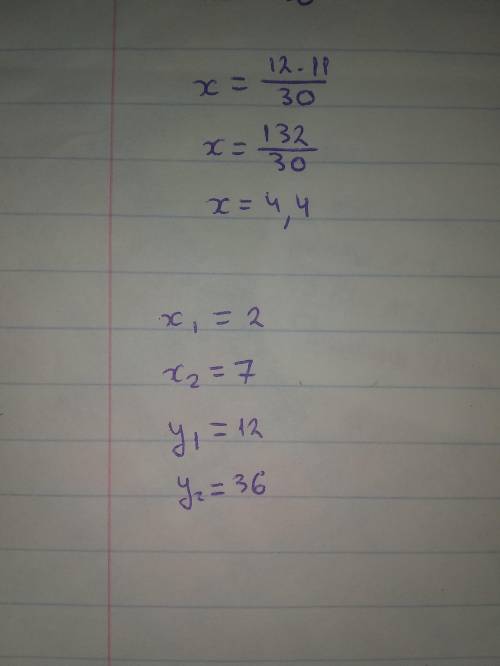 x = 12 · 11 / 30
x = 132 / 30
x = 4,4
x₁ = 2
x₂ = 7
y₁ = 12
y₂ = 36